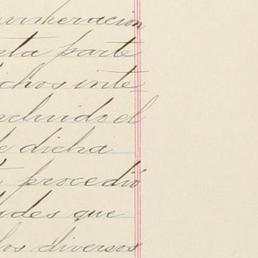 numeración
esta parte
dichos inte
ncluido el
e dicha
procedió
ades que
los diversos